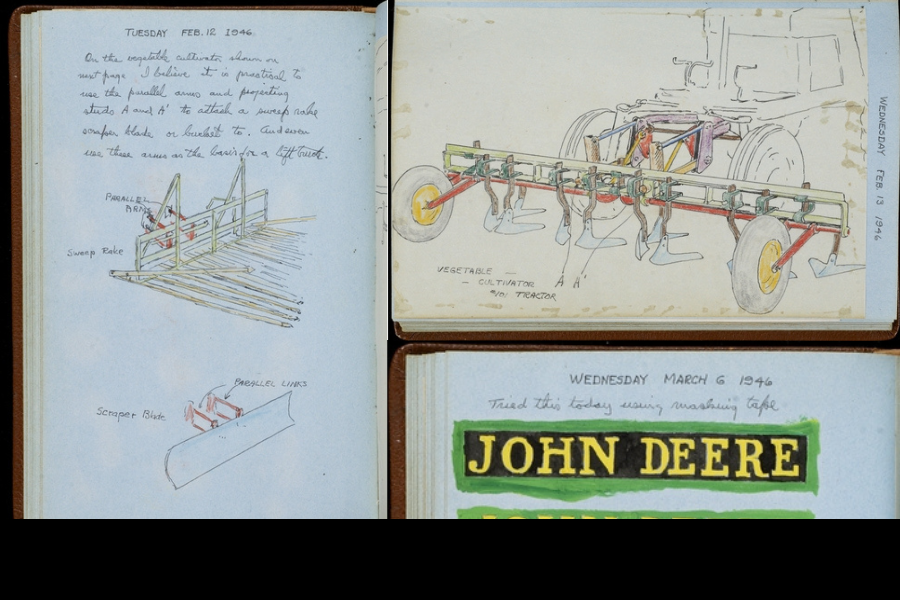 TUESDAY FEB. 12 1946
On the vegetable cultivator shown on
next page I believe it is practical to
use the parallel arms and projecting
studs A and A' to attach a sweep rake
scraper blade or bucket to. And even
use these arms as the basis for a lift truck.
PARALLEL
ARMS
Sweep Rake
PARALLEL LINKS
Scraper Blade
WEDNESDAY FEB. 13 1946
VEGETABLE —
— CULTIVATOR A A'
TRACTOR
WEDNESDAY MARCH 6 1946
Tried this today using masking tape
JOHN DEERE